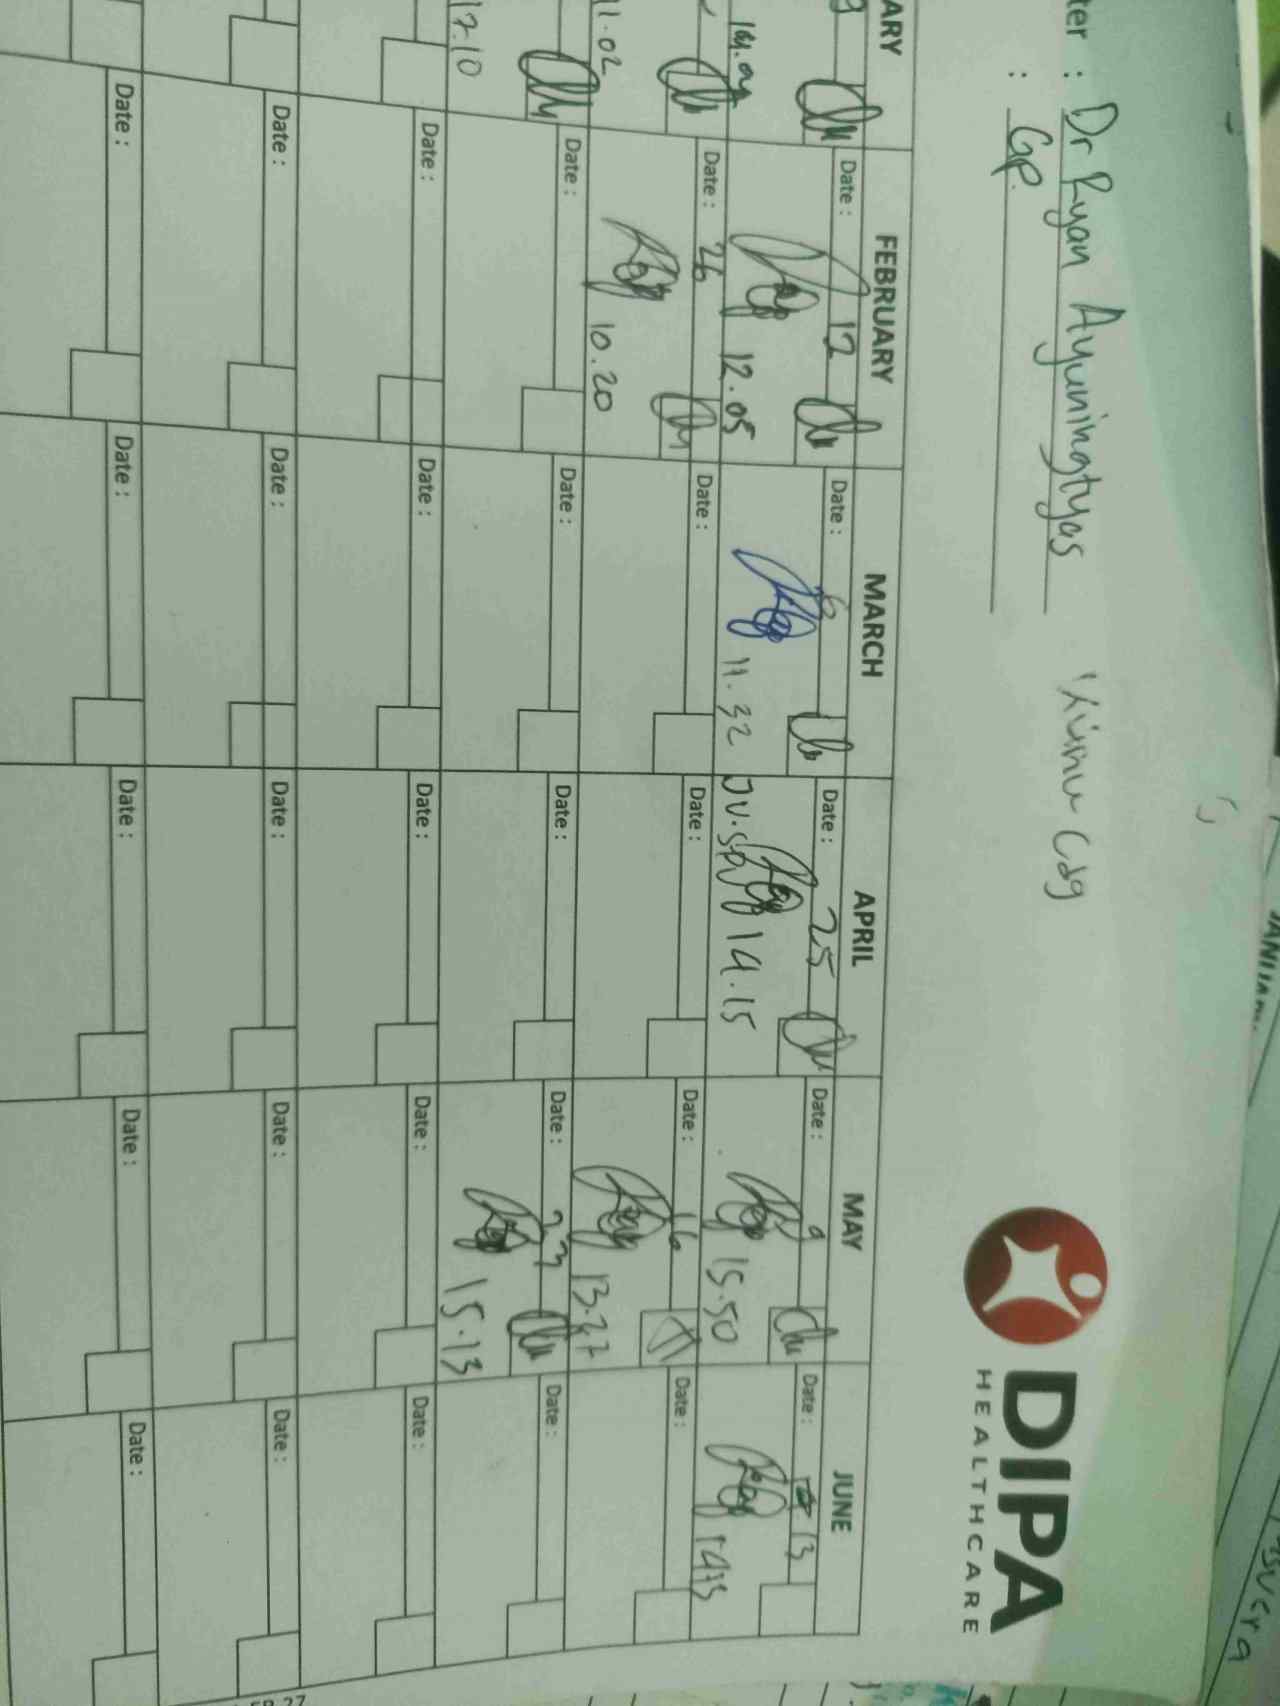 ter : Dr Ryan Ayuningtyas
: GP.
DIPA
HEALTHCARE
ARY FEBRUARY MARCH APRIL MAY JUNE
9 Date : 12 Date : 6 Date : 25 Date : 9 Date : 13
12.05 11.32 JV.SPV 14.15 15.50 1415
Date : 26 Date : Date : Date : 16 Date :
11.02 10.20 13.47
Date : Date : Date : Date : 23 Date :
17.10 15.13
Date : Date : Date : Date : Date :
Date : Date : Date : Date : Date :
Date : Date : Date : Date : Date :